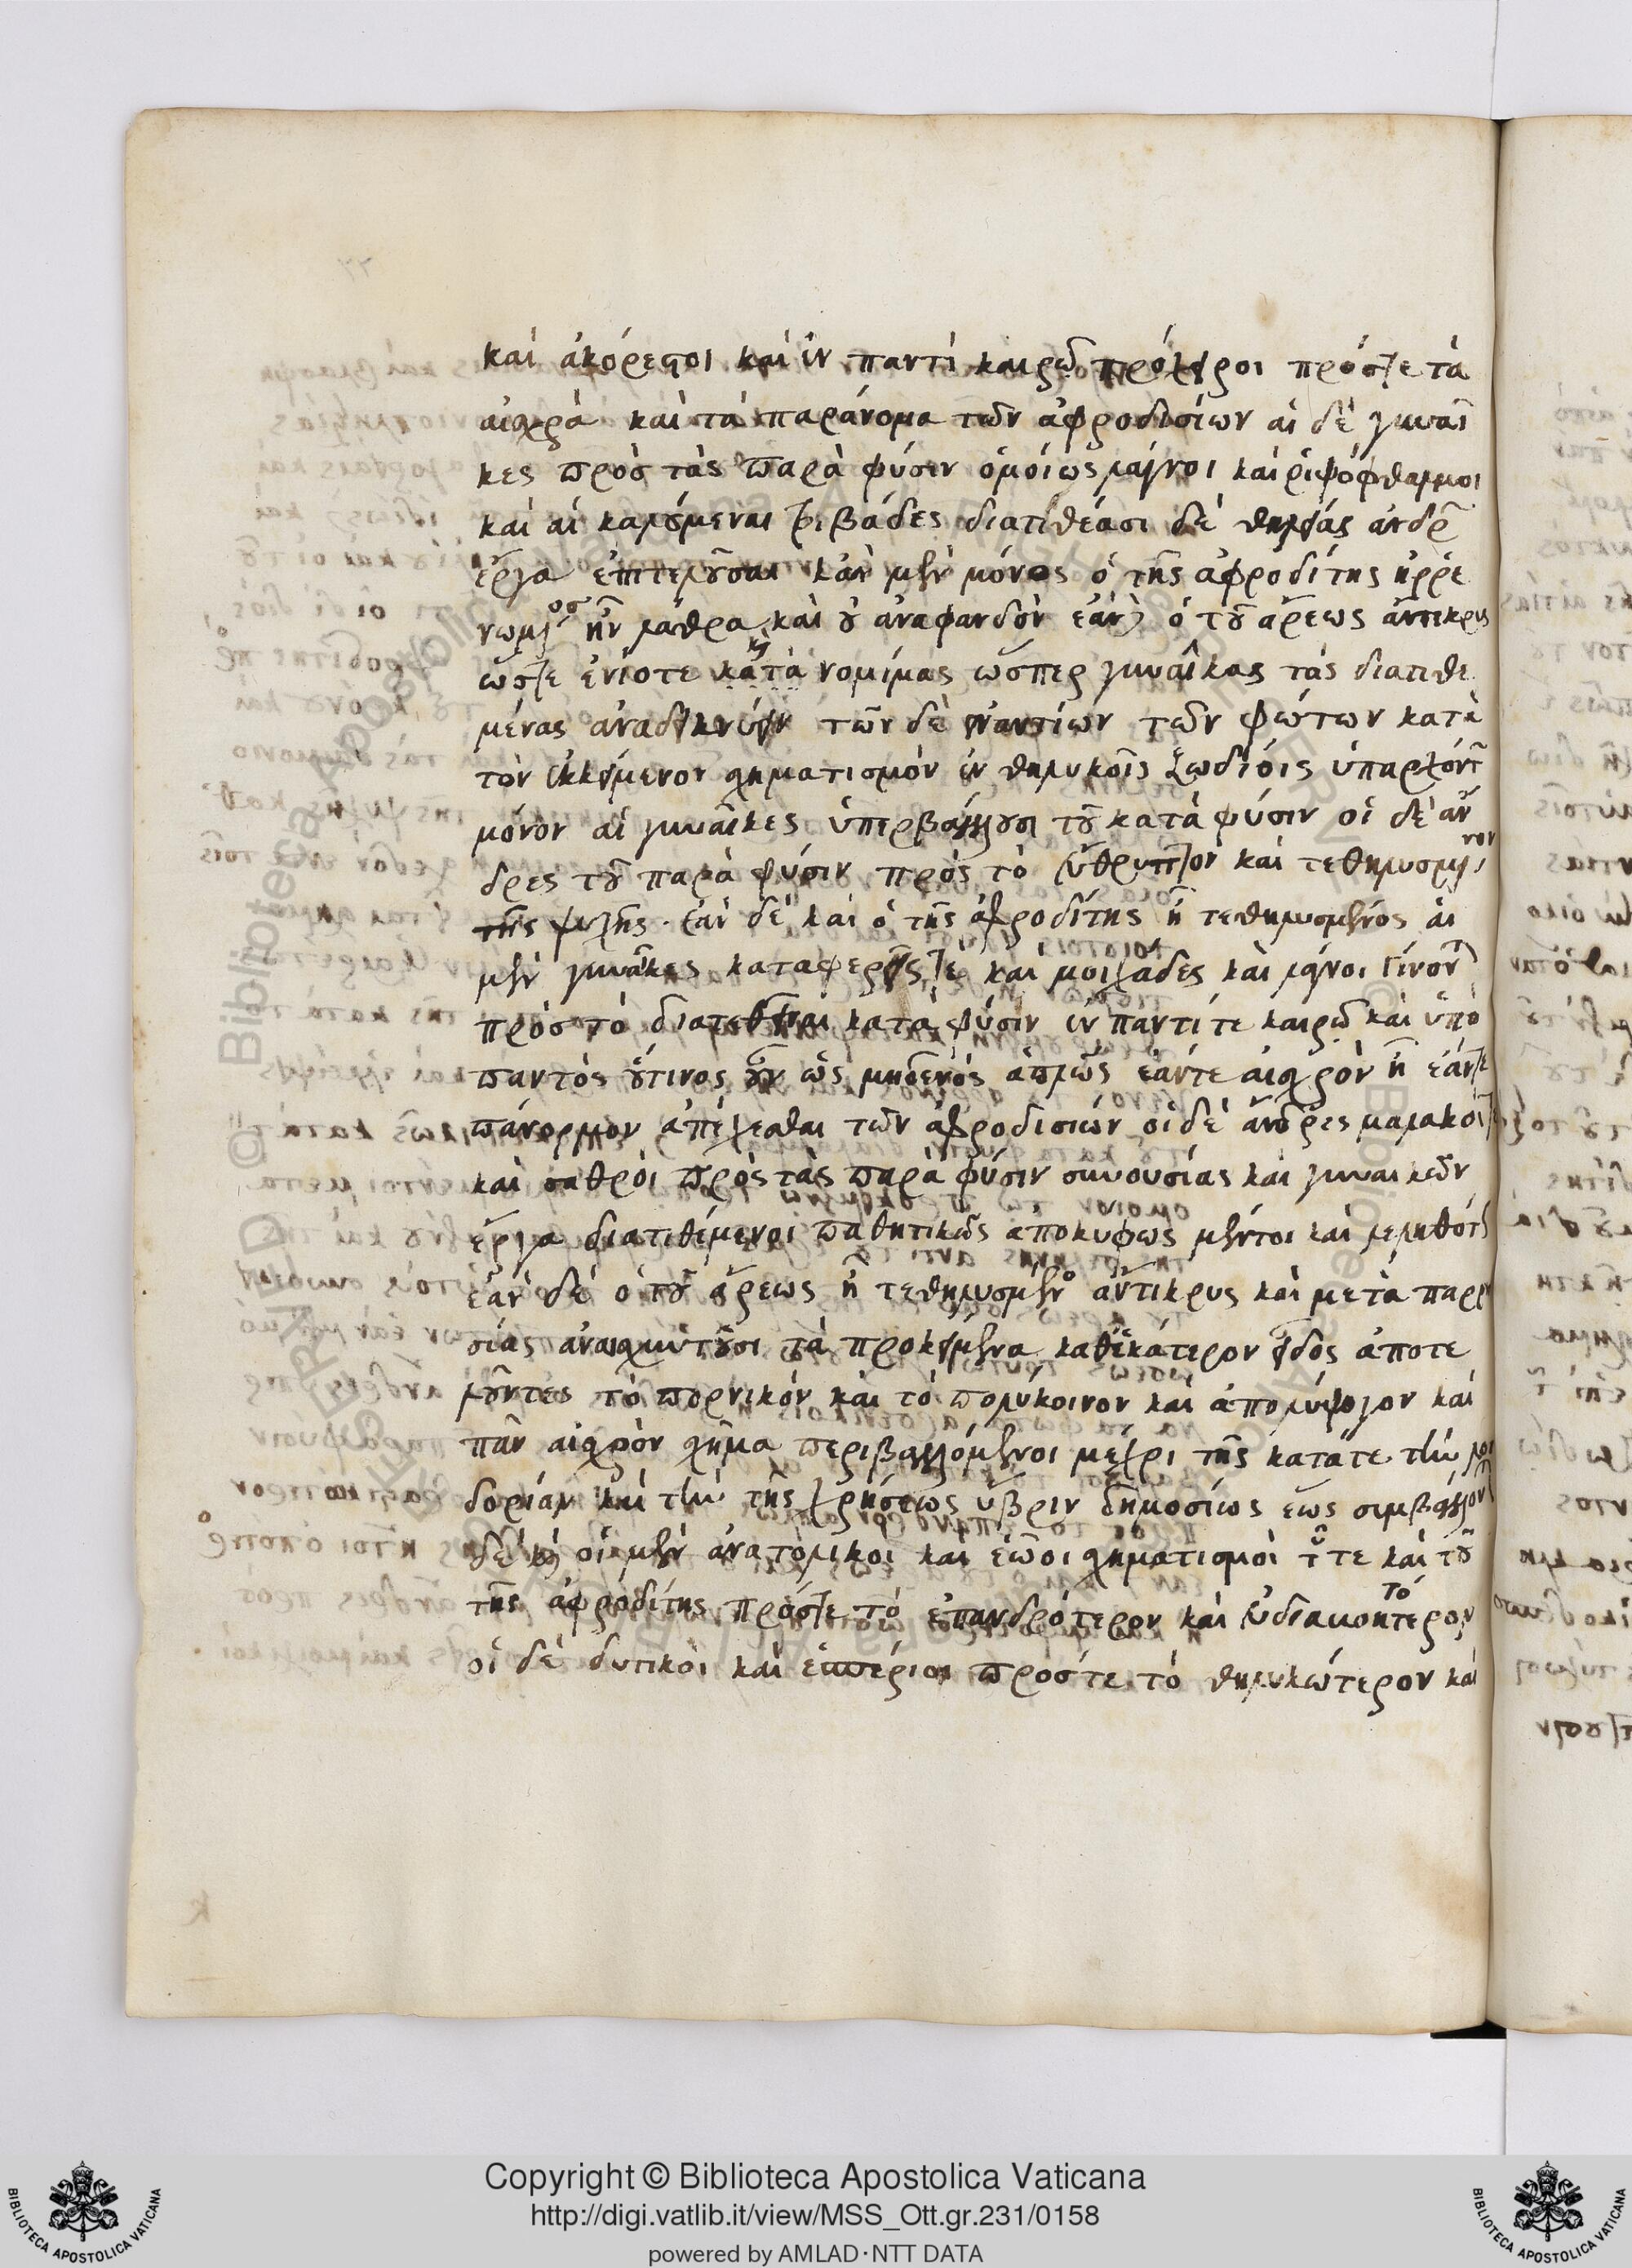 καὶ ἀκόρεστοι καὶ ἐν παντὶ καιρῷ πρόχειροι πρόστε τὰ
αἰσχρὰ καὶ τὰ παράνομα τῶν ἀφροδισίων αἱ δὲ γυναῖ
κες πρὸς τὰς παρὰ φύσιν ὁμοίως λάγνοι καὶ ῥιψόφθαλμοι
καὶ αἱ καλούμεναι τριβάδες διατιθέασι δὲ θηλείας ἀνδρ
ἔργα ἐπιτελοῦσαι κἂν μὲν μόνος ὁ τῆς ἀφροδίτης ἠρρε
νωμένος ἦν λάθρα καὶ οὐ ἀναφανδὸν ἐὰν δὲ ὁ τοῦ ἄρεως ἄντικρυς
ὥστε ἐνίοτε κατὰ νομίμας ὥσπερ γυναῖκας τὰς διατιθε
μένας ἀναδεικνύειν τῶν δὲ ἐναντίων τῶν φώτων κατὰ
τὸν ἐκκείμενον σχηματισμὸν ἐν θηλυκοῖς ζωδίοις ὑπαρχόντ
μόνον αἱ γυναῖκες ὑπερβάλλουσι τοῦ κατὰ φύσιν οἱ δὲ ἄν
δρες τοῦ παρὰ φύσιν πρὸς τὸ εὔθρυπτον καὶ τεθηλυσμένον
τῆς ψυχῆς. ἐὰν δὲ καὶ ὁ τῆς ἀφροδίτης ἦ τεθηλυσμένος αἱ
μὲν γυναῖκες καταφερεῖς τε καὶ μοιχάδες καὶ λάγνοι γίνοντ
πρὸς τὸ διατεθῆναι κατὰ φύσιν ἐν παντί τε καιρῷ καὶ ὑπὸ
παντὸς οὕτινος οὖν ὡς μηδενὸς ἁπλῶς ἐάντε αἰσχρὸν ἦ ἐάντε
πάνορμον ἀπέχεσθαι τῶν ἀφροδισιών οἱ δὲ ἄνδρες μαλακοί τε
καὶ σαθροὶ πρὸς τὰς παρὰ φύσιν συνουσίας καὶ γυναικῶν
ἔργα διατιθέμενοι παθητικῶς ἀποκύφως μέντοι καὶ λεληθότως
ἐὰν δὲ ὁ τοῦ ἄρεως ἦ τεθηλυσμένος ἄντικρυς καὶ μετὰ παρρη
σίας ἀναισχυντοῦσι τὰ προκείμενα καθ' ἑκάτερον εἶδος ἀποτε
λοῦντες τὸ πορνικὸν καὶ τὸ πολύκοινον καὶ ἀπολύψογον καὶ
πᾶν αἰσχρὸν σχῆμα περιβαλλόμενοι μέχρι τῆς κατάτε τὴν λοι
δορίαν καὶ τὴν τῆς χρήσεως ὕβριν δημοσίως ἕως συμβάλλοντ
δὲ καὶ οἱ μὲν ἀνατολικοὶ καὶ ἑῷοι σχηματισμοὶ τοῦ τε καὶ τοῦ
τῆς ἀφροδίτης πρόστε τὸ ἐπανδρότερον καὶ τὸ εὐδιακοητερον
οἱ δὲ δυτικοὶ καὶ ἑσπέριοι πρόστε τὸ θηλυκώτερον καὶ
Copyright © Biblioteca Apostolica Vaticana
http://digi.vatlib.it/view/MSS_Ott.gr.231/0158
powered by AMLAD·NTT DATA